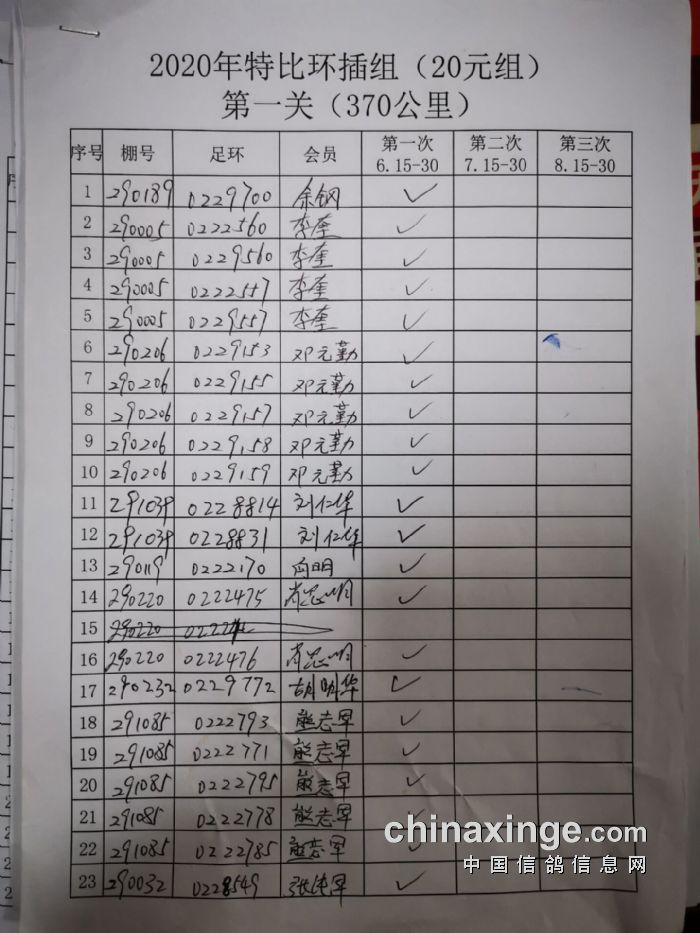 2020年特比环插组（20元组）
第一关（370公里）
序号 棚号 足环 会员 第一次 6.15-30 第二次 7.15-30 第三次 8.15-30
1 290189 0229700 余钢 ✓
2 290005 0222560 李奎 ✓
3 290005 0229560 李奎 ✓
4 290005 0222557 李奎 ✓
5 290005 0229557 李奎 ✓
6 290206 0229153 邓元勤 ✓
7 290206 0229155 邓元勤 ✓
8 290206 0229157 邓元勤 ✓
9 290206 0229158 邓元勤 ✓
10 290206 0229159 邓元勤 ✓
11 291039 0228814 刘仁华 ✓
12 291039 0228831 刘仁华 ✓
13 290119 0222170 向明 ✓
14 290220 0222475 肖志明 ✓
15 290220
16 290220 0222476 肖志明 ✓
17 290232 0229772 胡明华 ✓
18 291085 0222793 熊志军 ✓
19 291085 0222771 熊志军 ✓
20 291085 0222795 熊志军 ✓
21 291085 0222778 熊志军 ✓
22 291085 0222785 熊志军 ✓
23 290032 0228549 ✓
chinaxinge.com
中国信鸽信息网